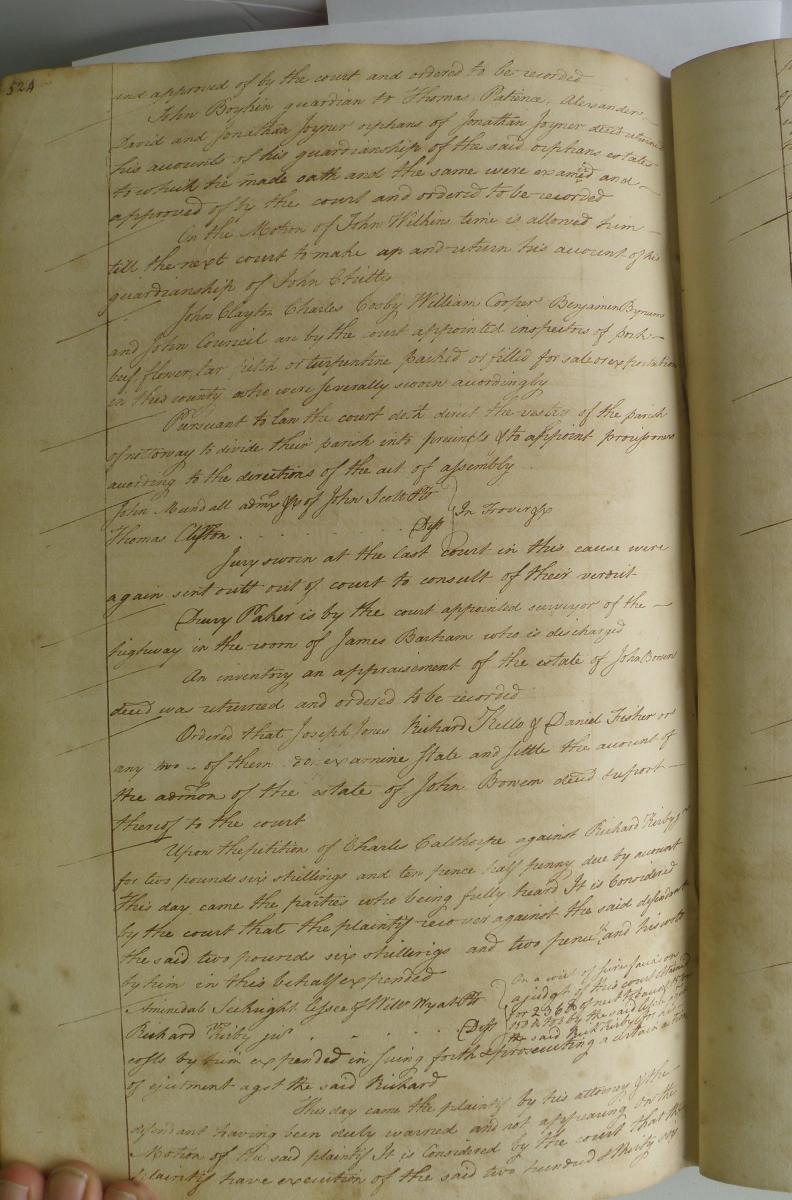 524
and approved of by the court and ordered to be recorded
John Boykin guardian to Thomas, Patience, Alexander
David and Jonathan Joyner orphans of Jonathan Joyner decd returned
his accounts of his guardianship of the said orphans estates
to which he made oath and the same were examd and
approved of by the court and ordered to be recorded
On the Motion of John Wilkins time is allowed him
till the next court to make up and return his account of his
guardianship of John
John Clayton Charles Cosby William Cooper Benjamin Bynum
and John Council are by the court appointed inspectors of pork
beef flower, tar pitch or turpentine packed or filled for sale or exportation
in this county who were severally sworn accordingly
Pursuant to law the court doth direct the vestry of the parish
of nottoway to divide their parish into precincts & to appoint processioners
according to the directions of the act of assembly
John Mundall admr &c of John Scott Plt
In Trover &c
Thomas Clifton Deft
Jury sworn at the last court in this cause were
again sent outt out of court to consult of their verdict
Drury Paker is by the court appointed surveyor of the
highway in the room of James Barham who is discharged
An inventory an appraisement of the estate of John Bowen
decd was returned and ordered to be recorded
Ordered that Joseph Jones Richard Kello & Daniel Fisher or
any two of them do examine state and settle the account of
the admon of the estate of John Bowen decd & report
thereof to the court
Upon the petition of Charles Calthorpe against Richard Kirby jr
for two pounds six shillings and ten pence half penny due by account
This day came the parties who being fully heard It is Considered
by the court that the plaintif recover against the said defendant
the said two pounds six shillings and two pence and his costs
by him in this behalf expended
Seekright Lessee of Willm Wyat Plt
Richard Kirby jnr Deft
On a writ of scire facias on
a judgt of this court obtained
for 236 of nett tobacco &
the said Richd Kirby for his
costs by him expended in suing forth & prosecuting a certain action
of ejectment agst the said Richard
This day came the plaintif by his attorney & the
defendant having been duly warned and not appearing On the
Motion of the said plaintif It is Considered by the court that the
plaintif have execution of the said two hundred & thirty six